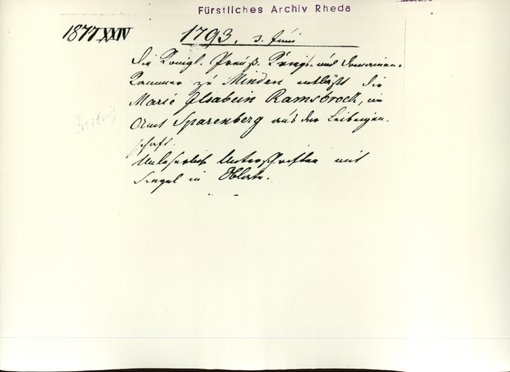 Fürstliches Archiv Rheda
1877 XXIV
1793, 3. Juni
Die Königl. Preuß. Kriegs- und Domainen-
Kammer zu Minden entläßt die
Marie Ilsabein Ramsbrock, im
Amt Sparenberg aus der Leibeigen-
schaft.
Unleserliche Unterschriften mit
Siegel in Oblate.